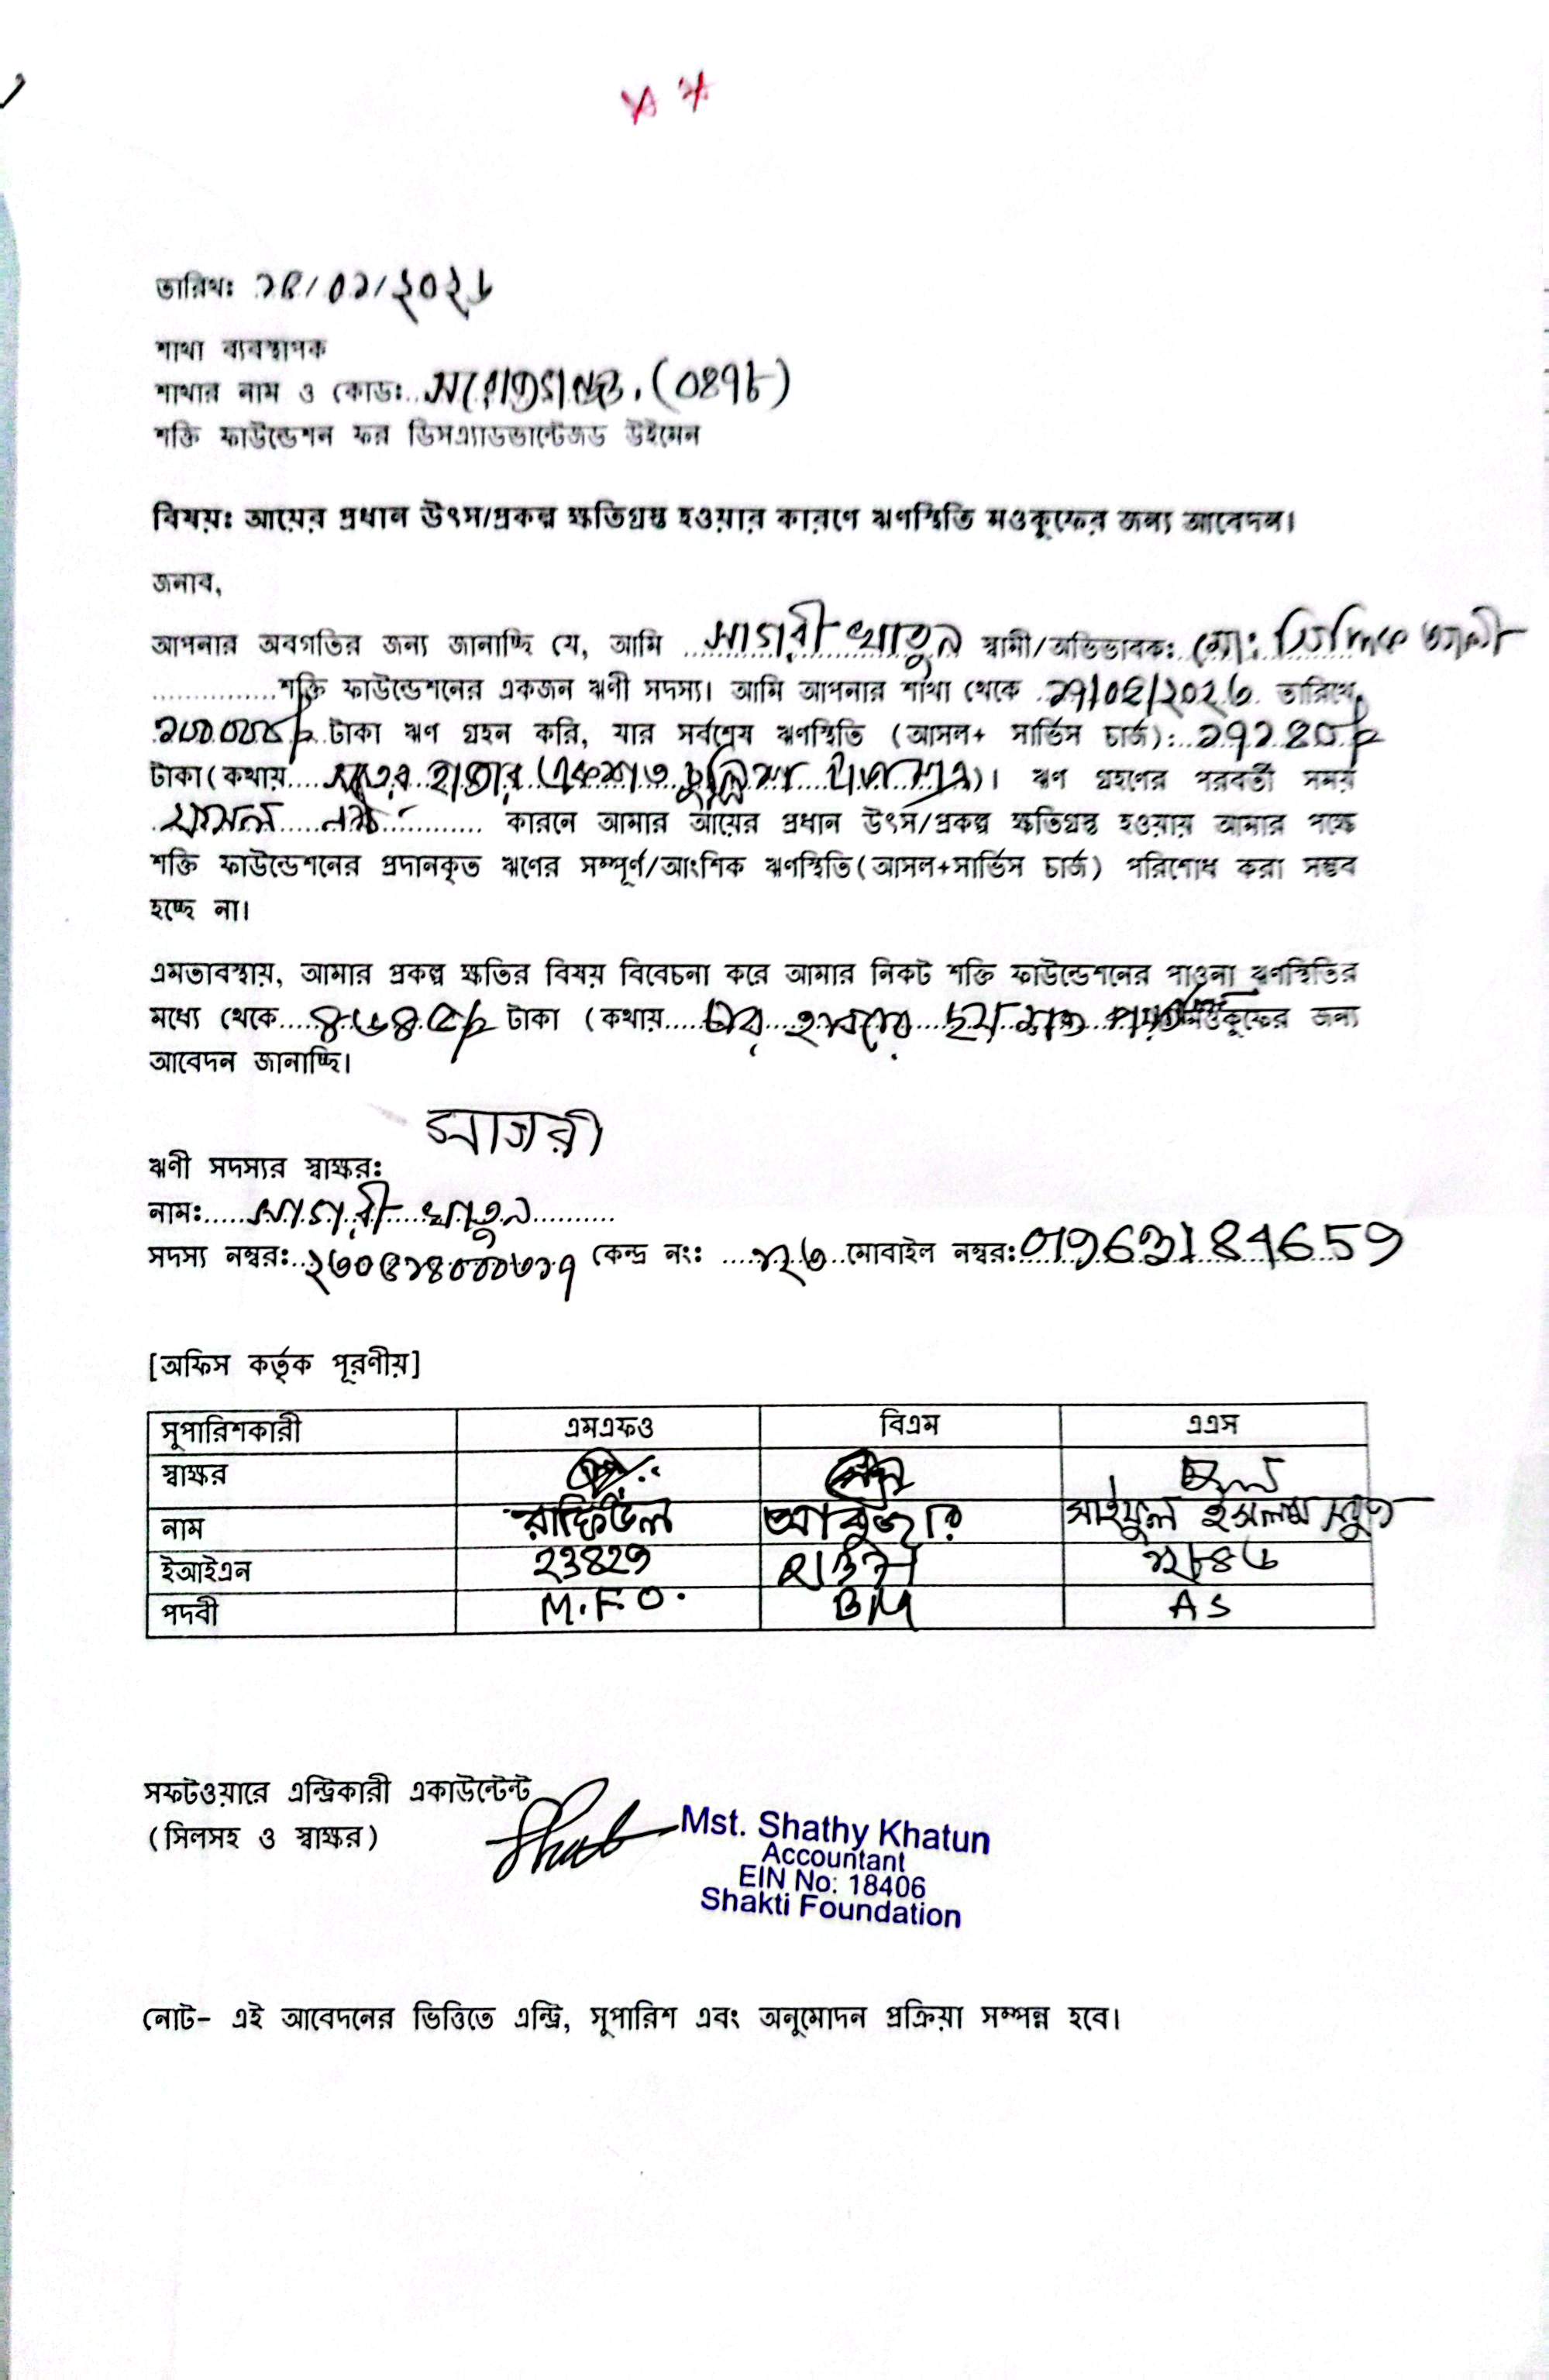 তারিখঃ ১৪/০১/২০২৬
শাখা ব্যবস্থাপক
শাখার নাম ও কোডঃ (0498)
শক্তি ফাউন্ডেশন ফর ডিসএ্যাডভান্টেজড উইমেন
বিষয়ঃ আয়ের প্রধান উৎস/প্রকল্প ক্ষতিগ্রস্ত হওয়ার কারণে ঋণস্থিতি মওকুফের জন্য আবেদন।
জনাব,
আপনার অবগতির জন্য জানাচ্ছি যে, আমি সাগরী খাতুন স্বামী/অভিভাবক: মোঃ আলী
শক্তি ফাউন্ডেশনের একজন ঋণী সদস্য। আমি আপনার শাখা থেকে তারিখে
টাকা ঋণ গ্রহন করি, যার সর্বশেষ ঋণস্থিতি (আসল+ সার্ভিস চার্জ): ১৭১৪০/-
টাকা(কথায় সতের হাজার একশত চল্লিশ টাকা মাত্র)। ঋণ গ্রহণের পরবর্তী সময়
কারনে আমার আয়ের প্রধান উৎস/প্রকল্প ক্ষতিগ্রস্ত হওয়ায় আমার পক্ষে
শক্তি ফাউন্ডেশনের প্রদানকৃত ঋণের সম্পূর্ণ/আংশিক ঋণস্থিতি(আসল+সার্ভিস চার্জ) পরিশোধ করা সম্ভব
হচ্ছে না।
এমতাবস্থায়, আমার প্রকল্প ক্ষতির বিষয় বিবেচনা করে আমার নিকট শক্তি ফাউন্ডেশনের পাওনা ঋণস্থিতির
মধ্যে থেকে টাকা (কথায় মওকুফের জন্য
আবেদন জানাচ্ছি।
সাগরী
ঋণী সদস্যর স্বাক্ষর:
নাম: সাগরী খাতুন
সদস্য নম্বর: কেন্দ্র নং: ১২৩ মোবাইল নম্বর:
[অফিস কর্তৃক পূরণীয়]
সুপারিশকারী এমএফও বিএম এএস
স্বাক্ষর
নাম রাফিউল আবুজার সাইফুল ইসলাম
ইআইএন 23829
পদবী M.F.O. BM AS
সফটওয়ারে এন্ট্রিকারী একাউন্টেন্ট
(সিলসহ ও স্বাক্ষর)
Mst. Shathy Khatun
Accountant
EIN No: 18406
Shakti Foundation
নোট- এই আবেদনের ভিত্তিতে এন্ট্রি, সুপারিশ এবং অনুমোদন প্রক্রিয়া সম্পন্ন হবে।